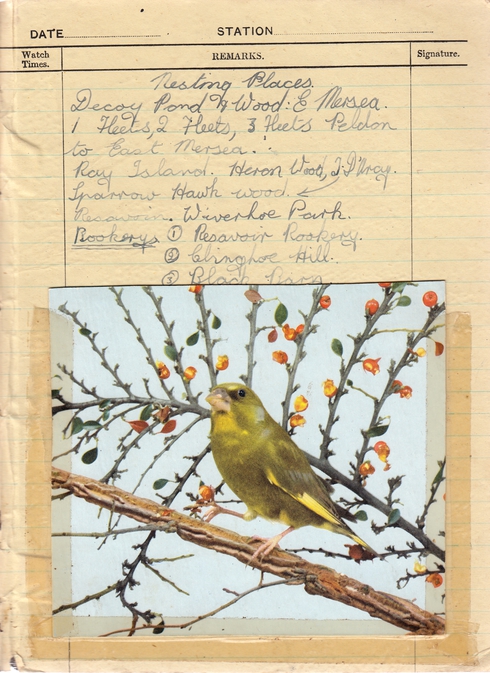 DATE STATION
Watch Times. REMARKS. Signature.
Nesting Places
Decoy Pond & Wood: E Mersea.
1 Fleets, 2 Fleets, 3 Fleets Peldon
to East Mersea.
Ray Island. Heron Wood,
Sparrow Hawk wood.
Resavoir. Wiverhoe Park.
Rookerys ① Resavoir Rookery.
② Clinghoe Hill.
③ Black Barn